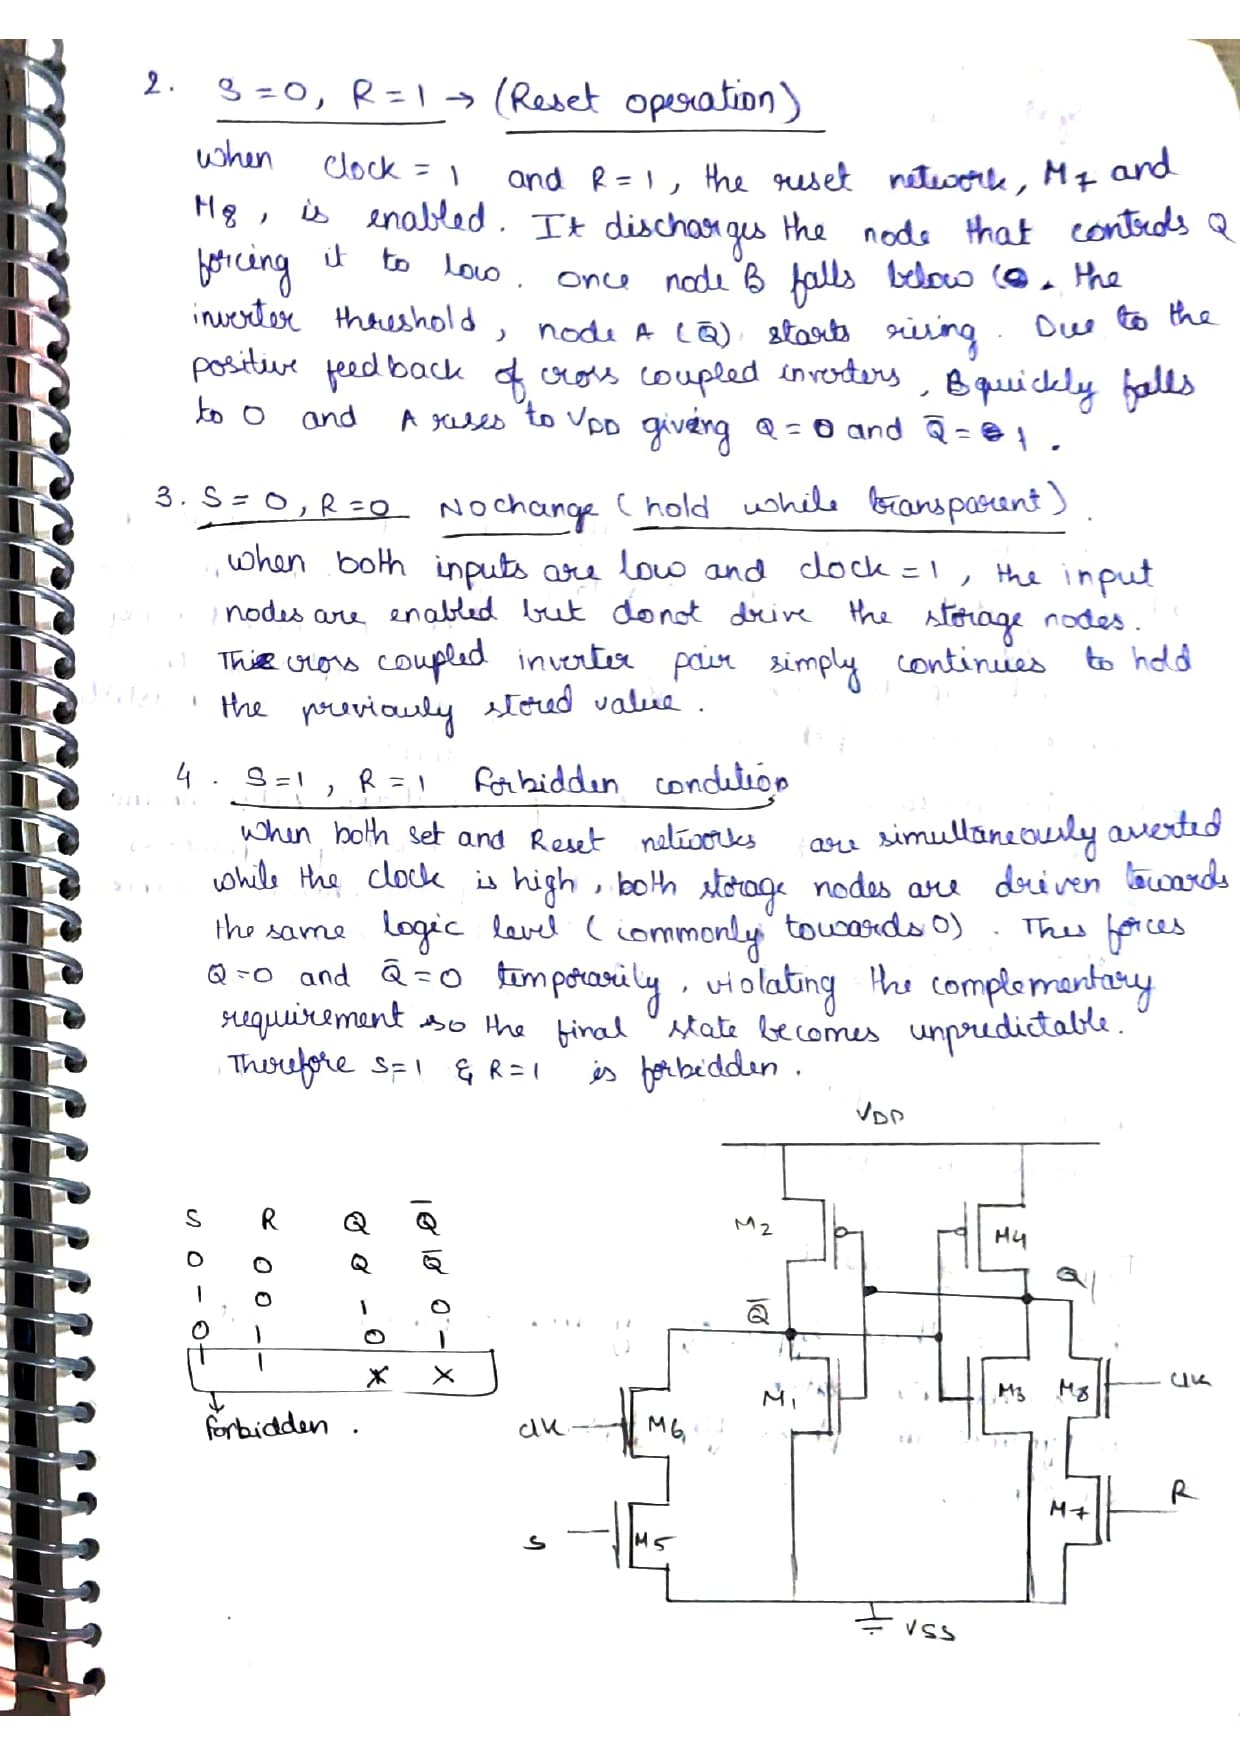 2. S=0, R=1 → (Reset operation)
when clock = 1 and R=1, the reset network, M7 and
M8, is enabled. It discharges the node that controls Q
forcing it to low. once node B falls below the
inverter threshold, node A (Q̄) starts rising. Due to the
positive feedback of cross coupled inverters, B quickly falls
to 0 and A rises to VDD giving Q = 0 and Q̄ = 1.
3. S=0, R=0 No change (hold while transparent).
when both inputs are low and clock = 1, the input
nodes are enabled but donot drive the storage nodes.
This cross coupled inverter pair simply continues to hold
the previously stored value.
4. S=1, R=1 Forbidden condition
when both set and Reset networks are simultaneously asserted
while the clock is high, both storage nodes are driven towards
the same logic level (commonly towards 0). This forces
Q=0 and Q̄=0 temporarily, violating the complementary
requirement so the final state becomes unpredictable.
Therefore S=1 & R=1 is forbidden.
VDD
S R Q Q̄
0 0 Q Q̄
1 0 1 0
0 1 0 1
1 1 * ×
↓
forbidden.
M2
M4
Q
Q̄
M1
M3
M8
clk
clk
M6
R
M7
S
M5
VSS